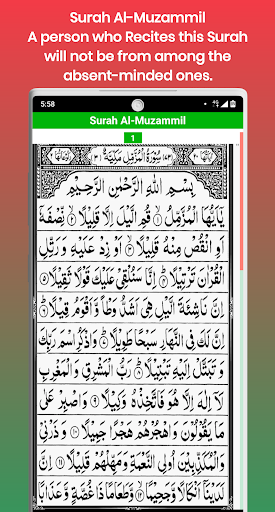 Surah Al-Muzammil
A person who Recites this Surah
will not be from among the
absent-minded ones.
5:58
Surah Al-Muzammil
1
سُوْرَةُ الْمُزَّمِّلِ مَكِّيَّةٌ
بِسْمِ اللّٰهِ الرَّحْمٰنِ الرَّحِيْمِ
يٰۤاَيُّهَا الْمُزَّمِّلُ ۙ﴿١﴾ قُمِ الَّيْلَ اِلَّا قَلِيْلًا ۙ﴿٢﴾ نِّصْفَهٗۤ
اَوِ انْقُصْ مِنْهُ قَلِيْلًا ۙ﴿٣﴾ اَوْ زِدْ عَلَيْهِ وَ رَتِّلِ
الْقُرْاٰنَ تَرْتِيْلًا ؕ﴿٤﴾ اِنَّا سَنُلْقِيْ عَلَيْكَ قَوْلًا ثَقِيْلًا ﴿٥﴾
اِنَّ نَاشِئَةَ الَّيْلِ هِيَ اَشَدُّ وَطْاً وَّ اَقْوَمُ قِيْلًا ؕ﴿٦﴾
اِنَّ لَكَ فِي النَّهَارِ سَبْحًا طَوِيْلًا ؕ﴿٧﴾ وَ اذْكُرِ اسْمَ رَبِّكَ
وَ تَبَتَّلْ اِلَيْهِ تَبْتِيْلًا ؕ﴿٨﴾ رَبُّ الْمَشْرِقِ وَ الْمَغْرِبِ
لَاۤ اِلٰهَ اِلَّا هُوَ فَاتَّخِذْهُ وَكِيْلًا ﴿٩﴾ وَ اصْبِرْ عَلٰى
مَا يَقُوْلُوْنَ وَ اهْجُرْهُمْ هَجْرًا جَمِيْلًا ﴿١٠﴾ وَ ذَرْنِيْ
وَ الْمُكَذِّبِيْنَ اُولِي النَّعْمَةِ وَ مَهِّلْهُمْ قَلِيْلًا ﴿١١﴾ اِنَّ
لَدَيْنَاۤ اَنْكَالًا وَّ جَحِيْمًا ﴿١٢﴾ وَّ طَعَامًا ذَا غُصَّةٍ وَّ عَذَابًا